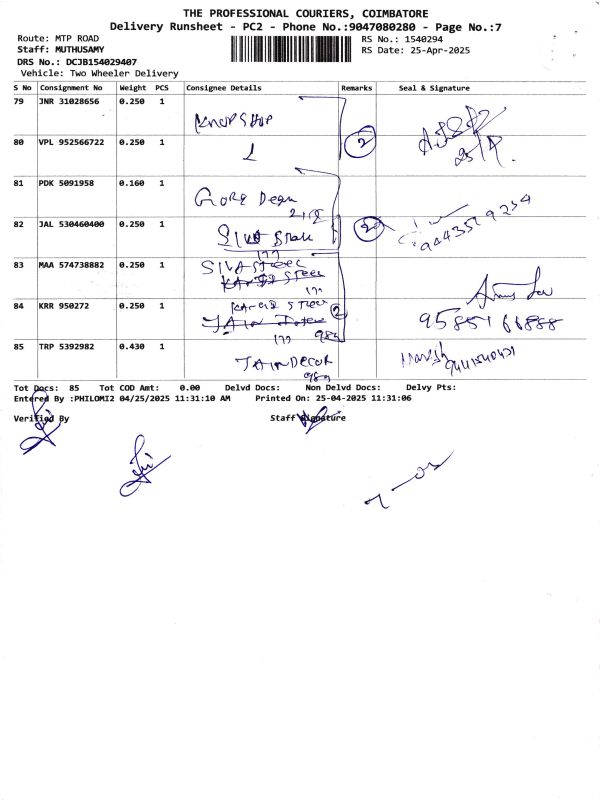 THE PROFESSIONAL COURIERS, COIMBATORE
Delivery Runsheet - PC2 - Phone No.:9047080280 - Page No.:7
Route: MTP ROAD RS No.: 1540294
Staff: MUTHUSAMY RS Date: 25-Apr-2025
DRS No.: DCJB154029407
Vehicle: Two Wheeler Delivery
S No Consignment No Weight PCS Consignee Details Remarks Seal & Signature
79 JNR 31028656 0.250 1
80 VPL 952566722 0.250 1 2
81 PDK 5091958 0.160 1
82 JAL 530460400 0.250 1 2
83 MAA 574738882 0.250 1 SIVA STEEL
84 KRR 950272 0.250 1 2 9585166888
85 TRP 5392982 0.430 1 JAIN DECOR
Tot Docs: 85 Tot COD Amt: 0.00 Delvd Docs: Non Delvd Docs: Delvy Pts:
Entered By :PHILOMI2 04/25/2025 11:31:10 AM Printed On: 25-04-2025 11:31:06
Verified By Staff Signature